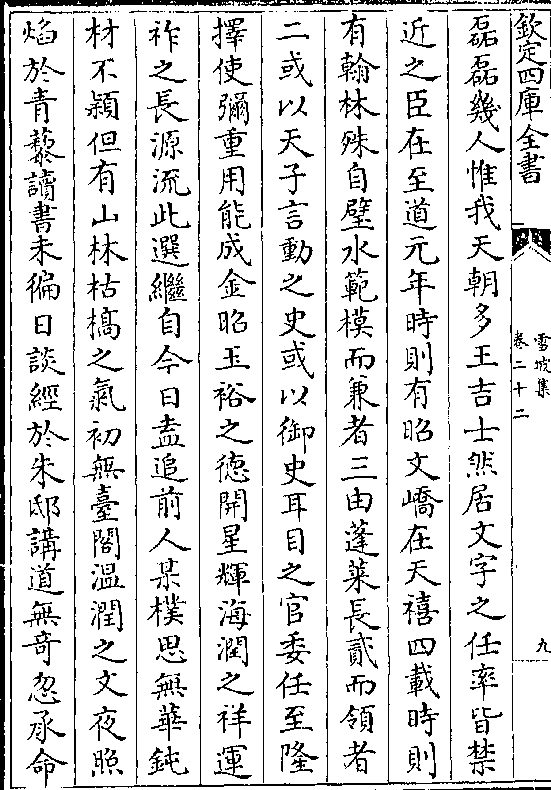 欽定四庫全書
雪坡集
卷二十二
九
磊磊幾人惟我天朝多王吉士然居文字之任率皆禁
近之臣在至道元年時則有昭文嶠在天禧四載時則
有翰林殊自璧水範模而兼者三由蓬萊長貳而領者
二或以天子言動之史或以御史耳目之官委任至隆
擇使彌重用能成金昭玉裕之德開星輝海潤之祥運
祚之長源流此選繼自今日盍追前人某樸思無華鈍
材不穎但有山林枯槁之氣初無臺閣溫潤之文夜照
焰於青藜讀書未徧日談經於朱邸講道無奇忽承命